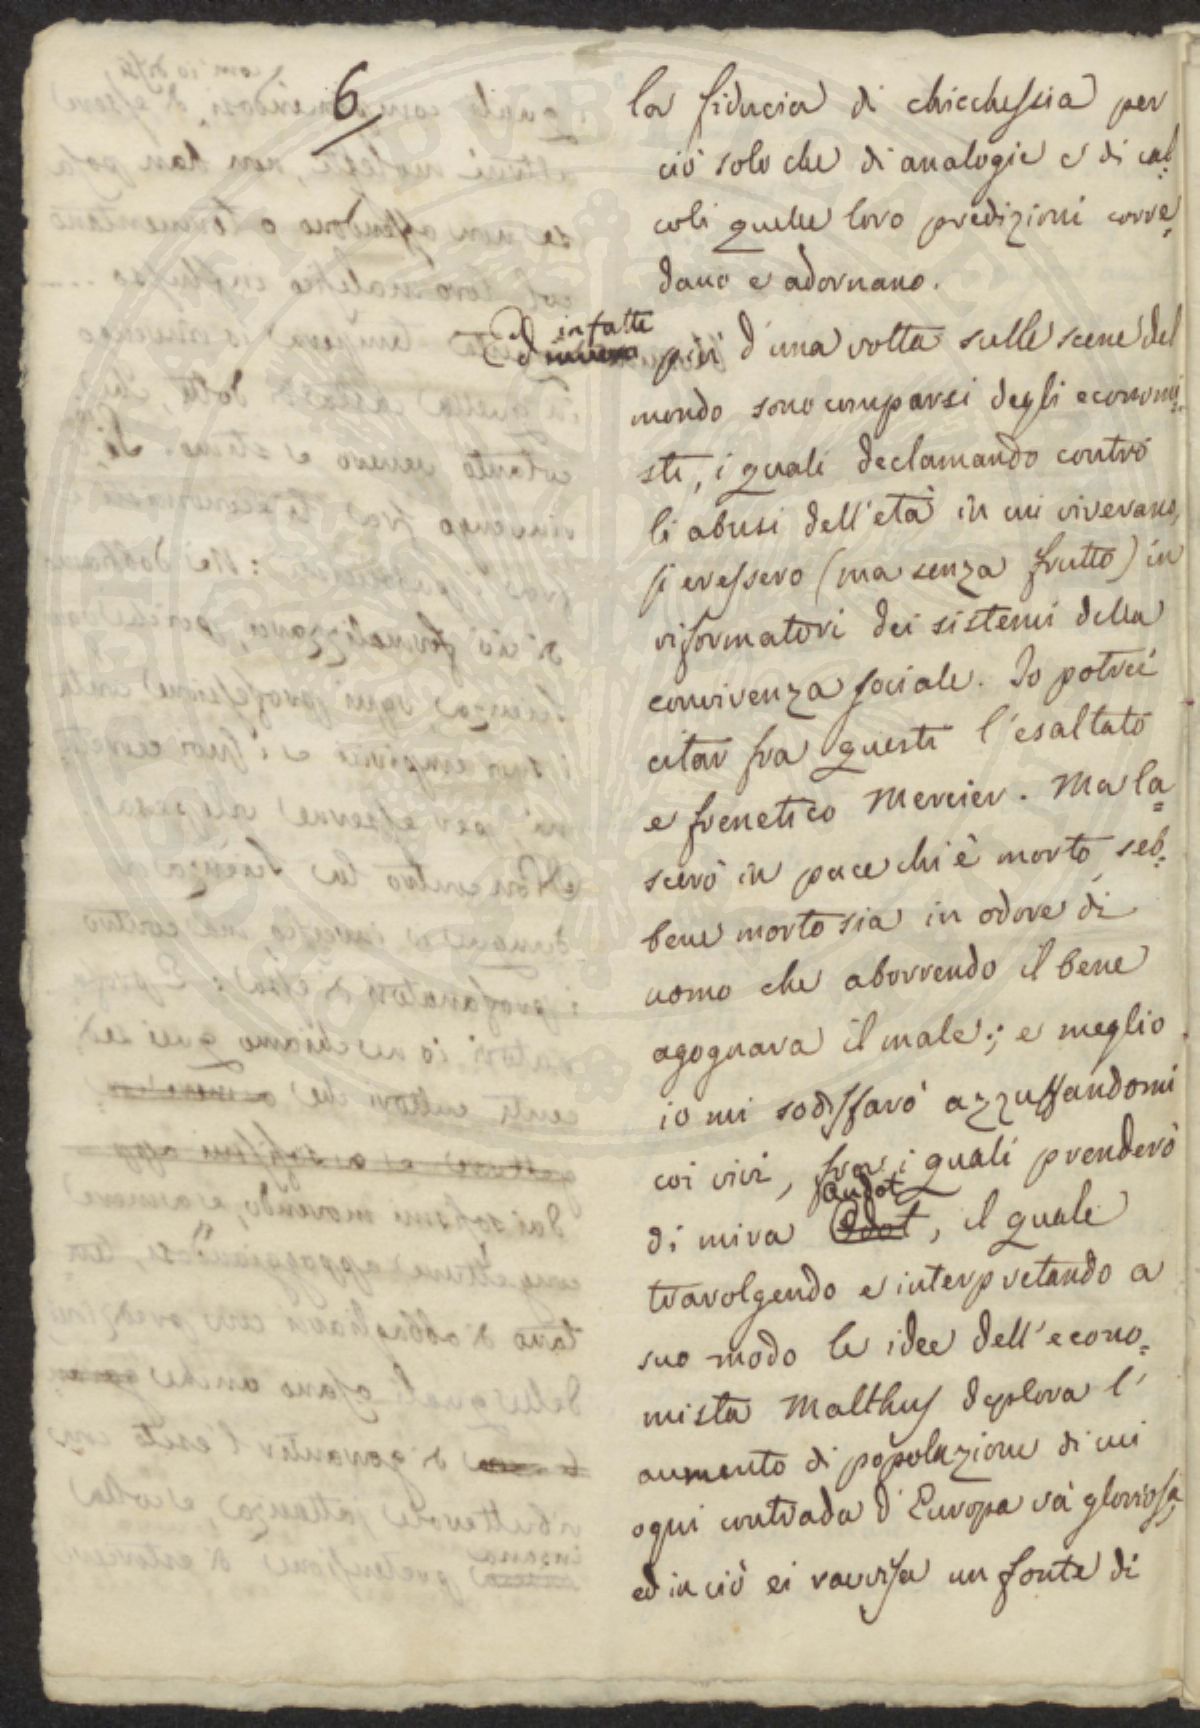 6
la fiducia di chicchessia per
ciò solo che di analogie e di cal=
coli quelle loro predizioni corre=
dano e adornano.
Ed infatti più d'una volta sulle scene del
mondo sono comparsi degli economi=
sti, i quali declamando contro
li abusi dell'età in cui vivevano,
si eressero (ma senza frutto) in
riformatori dei sistemi della
convivenza sociale. Io potrei
citar fra questi l'esaltato
e frenetico Mercier. Ma la=
scerò in pace chi è morto, seb=
bene morto sia in odore di
uomo che aborrendo il bene
agognava il male; e meglio
io mi sodisfarò azzuffandomi
coi vivi, fra i quali prenderò
di mira Audot, il quale
travolgendo e interpretando a
suo modo le idee dell'econo=
mista Malthus deplora l'
aumento di popolazione di cui
ogni contrada d'Europa và gloriosa,
ed in ciò ei ravvisa un fonte di